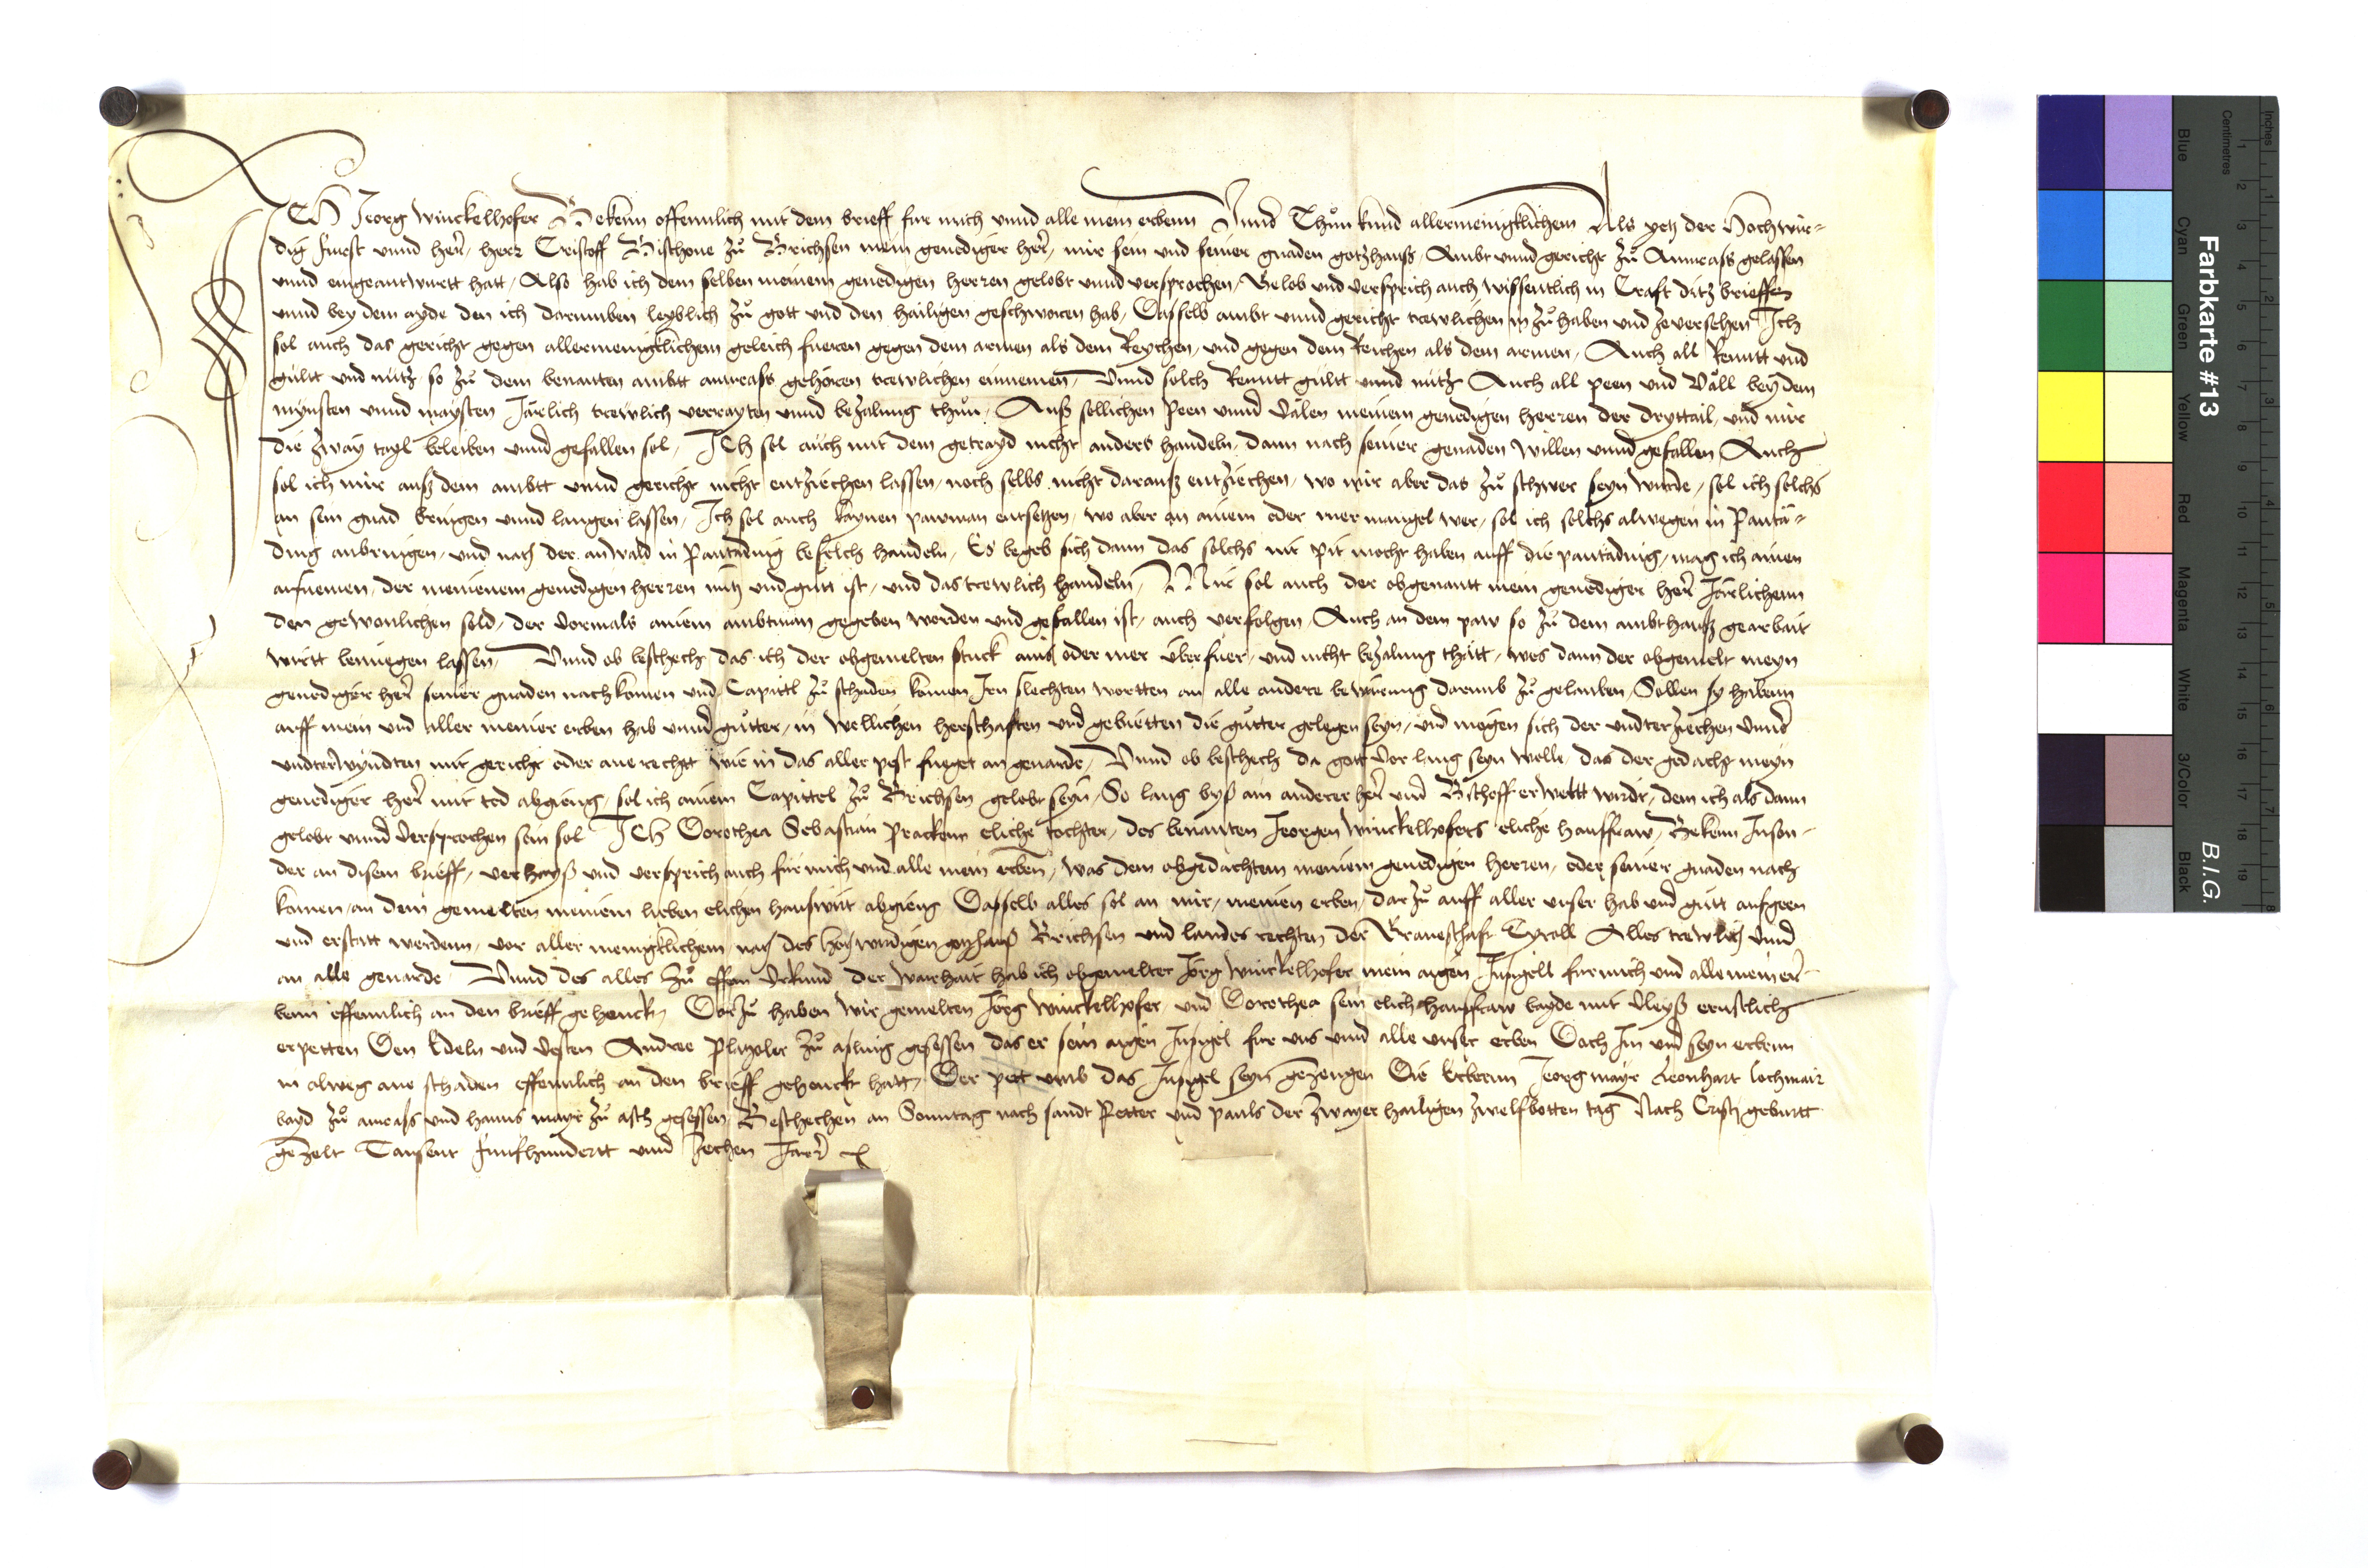 ICh Jeorg Winckelhofer Bekenn offennlich mit dem brieff fur mich vnnd alle mein erbenn Vnnd Thuͦn kund allermeinigklichem Als yetz der Hochwir-
dig Furst vnnd herr, herr Cristoff Bischoue zuͦ Brichsen mein genediger herr, mir sein vnd seiner gnaden gotzhauß, Ambt vnnd gericht zuͦ Anrass gelassen
vnnd eingeantwurtt hatt, Also hab ich dem selben meinem genedigen herren gelobt vnnd versprochen, Gelob vnd versprich auch wissentlich in Craft ditz brieffes
vnnd bey dem ayde den ich darumben leyblich zuͦ gott vnd den hailigen geschworen hab, Dasselb ambt vnnd gericht trewlichen in zuͦ haben vnd zeversehen Ich
sol auch das gericht gegen allermenigklichem geleich fueren gegen dem armen als dem Reychen, vnd gegen dem Reichen als dem armen, Auch all Renntt vnd
gultt vnd nutz so zuͦ dem benanten ambtt anrass gehoren trewlichen einnemen, Vnnd solch Renntt gultt vnnd nutz Auch all peen vnd Väll bey dem
mynsten vnnd maysten Järlich trewlich verrayten vnnd bezalung thuͦn, Auß sollichen Peen vnnd Välen meinem genedigen herren der dryttail, vnd mir
die zway tayl beleiben vnnd gefallen sol, ICh sol auch mit dem getrayd nicht anders handeln, dann nach seiner genaden willen vnnd gefallen Auch
sol ich mir auß dem ambtt vnnd gericht nicht entziechen lassen, noch selbs nicht darauß entziechen, wo mir aber das zuͦ schwer seyn wurde, sol ich solchs
an sein gnad bringen vnnd langen lassen, Ich sol auch kaynen pawman entsetzen, wo aber an ainem oder mer mangel wer, sol ich solchs alwegen in Pantä-
ding anbringen, vnd nach der anwald in Pantäding befelch handeln, Es begeb sich dann das solchs nit pit mocht haben auff die pantäding, mag ich ainen
aufnemen, der meinenem genedigen herren nutz vnd gutt ist, vnd das trewlich handeln, Mir sol auch der obgenantt mein genediger herr Järlichenn
den gewonlichen sold, der vormals ainem ambtman gegeben worden vnd gefallen ist, auch verfolgen, Auch an dem paw so zuͦ dem ambthauß gearbait
wirtt benuegen lassen, Vnnd ob beschech das ich der obgemelten stuck ains oder mer überfuer, vnd nicht bezalung thätt, wes dann der obgemelt meyn
genediger herr seiner gnaden nachkomen vnd Capittl zuͦ schaden komen Irn slechten wortten an alle andere bewërung darumb zuͦ gelauben, Sollen sy habenn
auff mein vnd aller meiner erben hab vnnd guͦtter, in wellichen herschafften vnd gebietten die guͦtter gelegen seyn, vnd mogen sich der vndterziechen vnnd
vndterwyndten mit gericht oder ane rechtt wie in das aller pest fueget an geuärde, Vnnd ob beschech da gott vor lang seyn welle, das der gedacht meyn
genediger herr mit tod abgieng, sol ich ainem Capittel zuͦ Brichsen gelobt seyn, So lang byß ain anderer herr vnd Bischoff erweltt wirdt, dem ich als dann
gelobt vnnd versprochen sein sol ICh Dorothea Sebastian Prackenn eliche tochter, des benanten Jeorgen Winckelhofers eliche hausfraw, Bekenn Inson-
der an disem brieff, verhayß vnd versprich auch fur mich vnd alle mein erben, was dem obgedachtem meinem genedigen herren, oder seiner gnaden nach
komen, an dem gemelten meinem lieben elichen hauswirt abgieng Dasselb alles sol an mir, meinen erben, dar zuͦ auff aller vnser hab vnd gutt aufgeen
vnd erstatt werdenn, vor aller menigklichem, nach des hochwirdigen gotzhauß Brichsen vnd landes rechten der Graueschaft Tyroll Alles trewlich vnd
an alle geuärde Vnnd des alles zuͦ offem vrkund der warhait hab ich obgemelter Jorg Winckelhofer mein aigen Insigell fur mich vnd alle mein er-
benn offennlich an den brieff gehenckt, Dar zuͦ haben wir gemelten Jorg Winckelhofer, vnd Dorothea sein elich hausfraw bayde mit vleyß ernstlich
erpetten Den Edeln vnd vesten Andree Platzoler zuͦ asling gesessen das er sein aigen Insigel fur vns vnnd alle vnser erben Doch Im vnd seyn erbenn
in alweg ane schaden offennlich an den brieff gehenckt hatt, Der pett vmb das Insigel seyn gezeugen Die Erbernn Jeorg mayr Leonhart Lochmair
bayd zuͦ anrass vnd hanns mayr zuͦ asch gesessen, Beschechen an Sonntag nach sandt Petter vnd pauls der zwayer hailigen zwelfbotten tag Nach Cristj geburtt
gezelt Tausent funfhundertt vnd zechen Jarr
Farbkarte #13
B.I.G.
Blue
Cyan
Green
Yellow
Red
Magenta
White
3/Color
Black
Centimetres
Inches
1 2 3 4 5 6 7 8 9 10 11 12 13 14 15 16 17 18 19
1 2 3 4 5 6 7 8